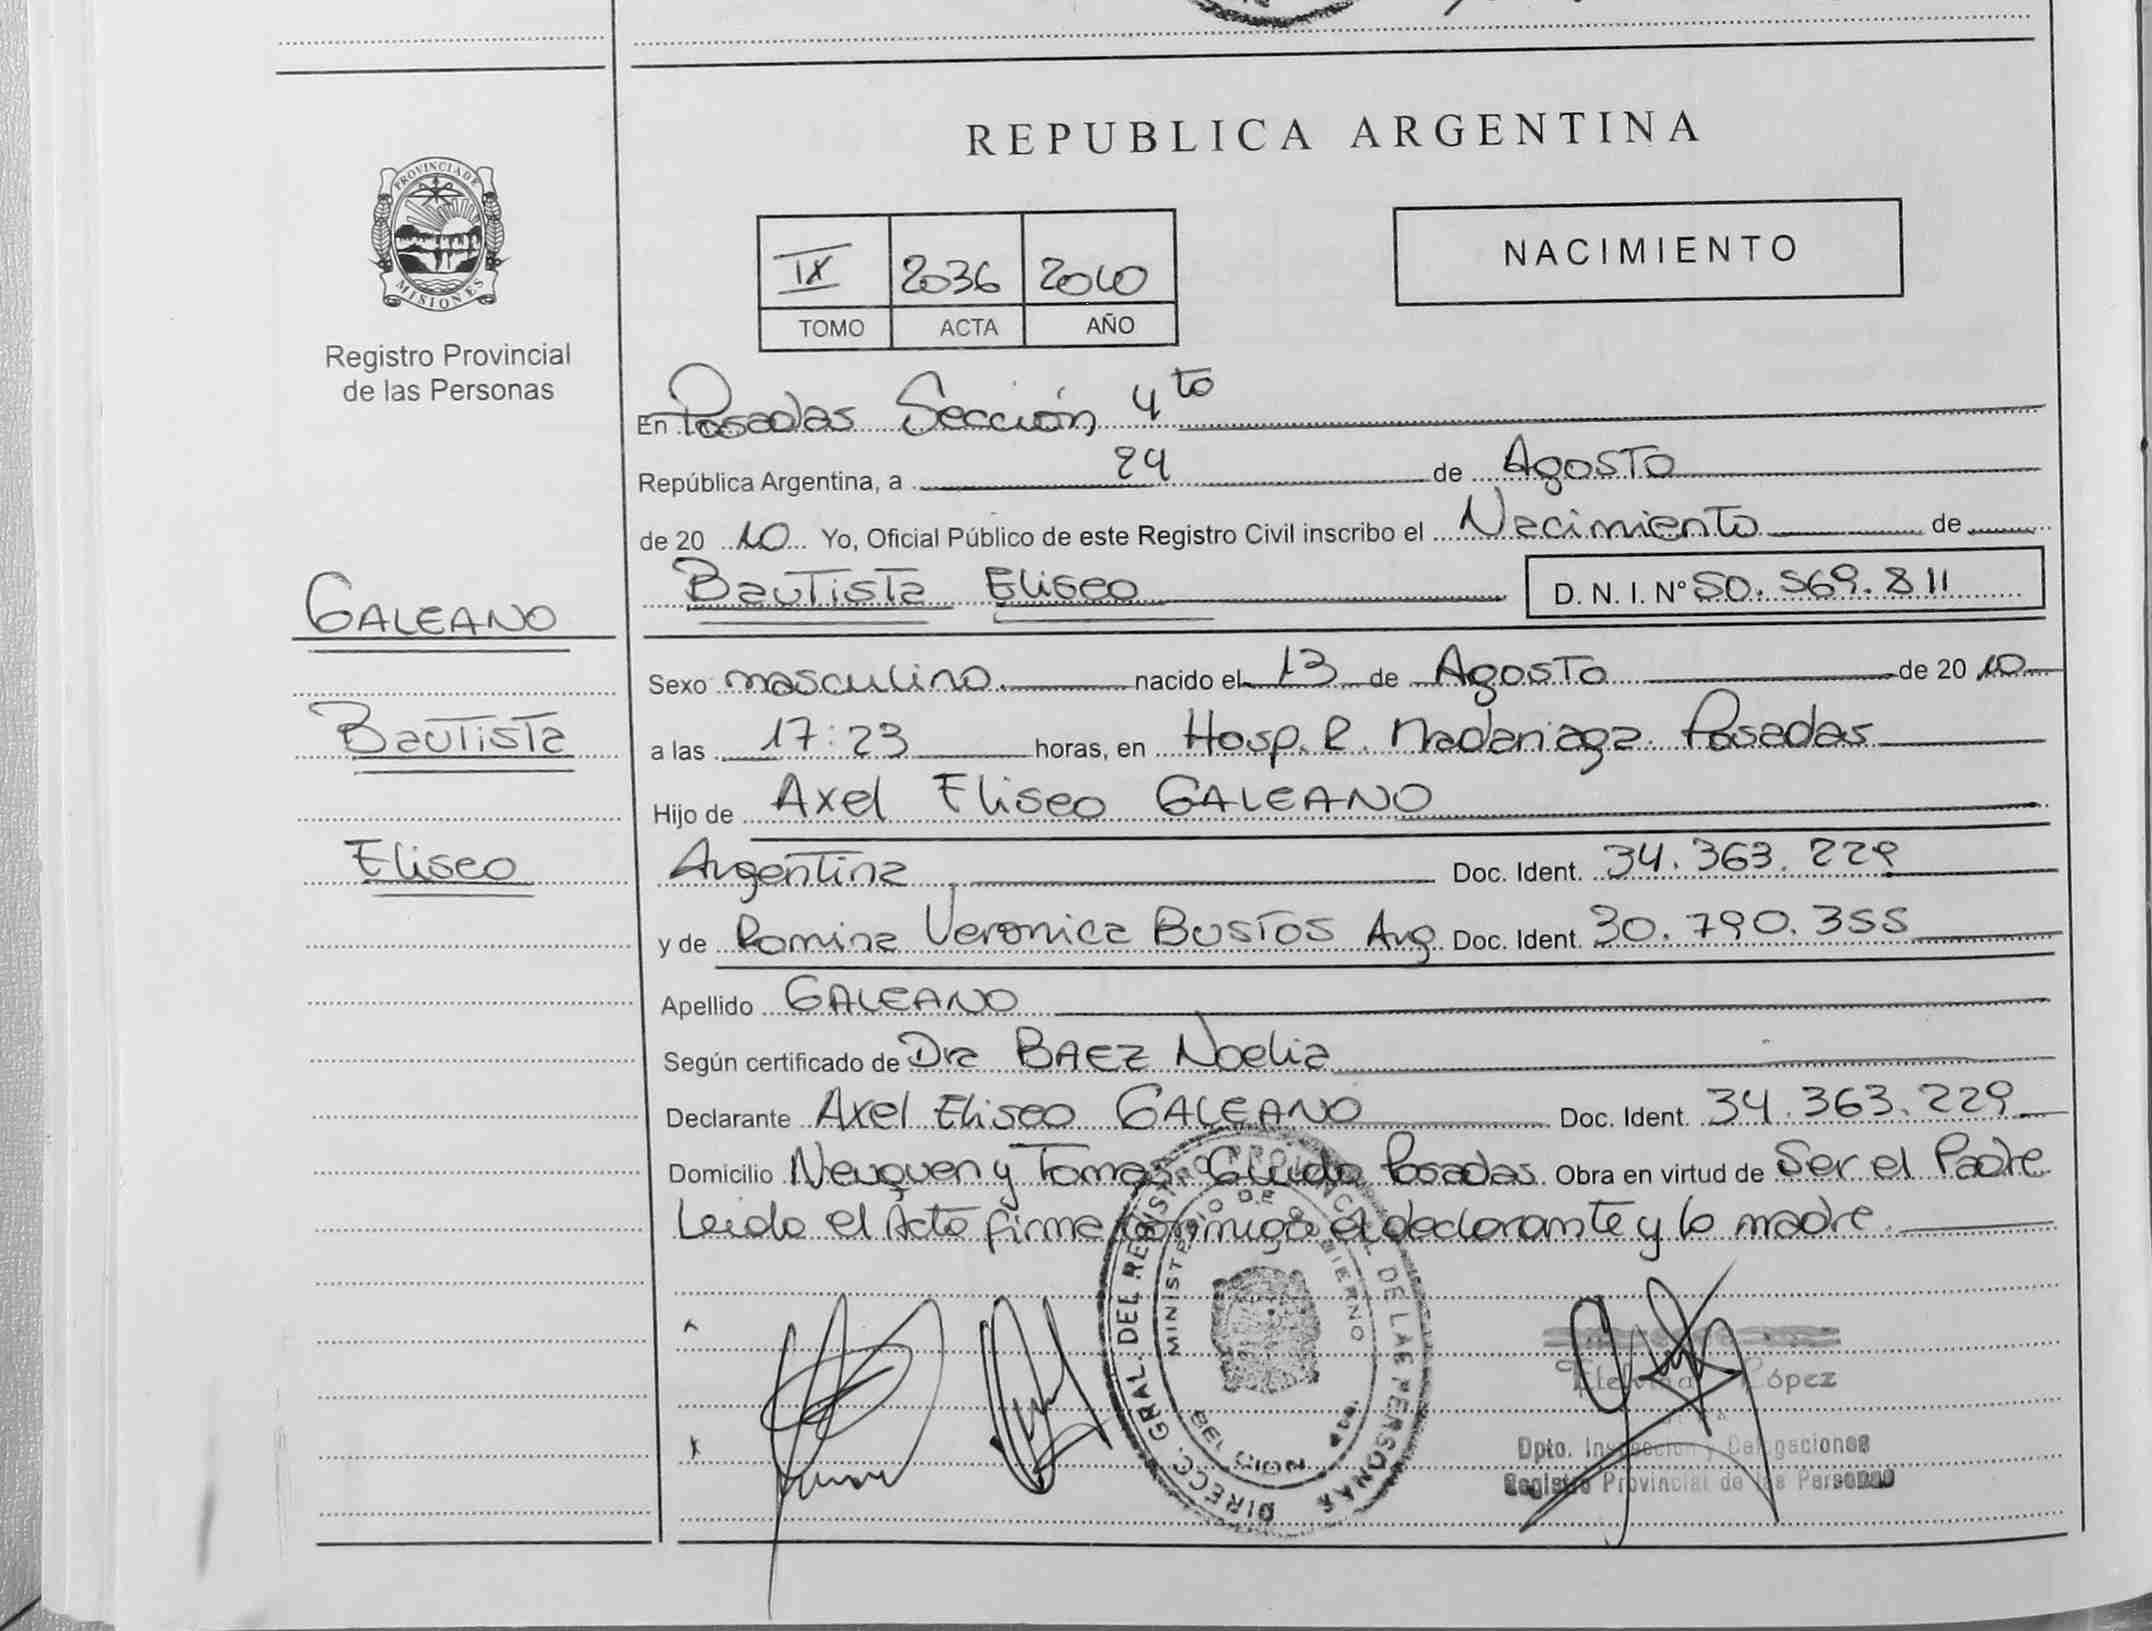 REPUBLICA ARGENTINA
PROVINCIA DE MISIONES
Registro Provincial
de las Personas
NACIMIENTO
IX 2036 2010
TOMO ACTA AÑO
En Posadas Sección 4to
República Argentina, a 24 de Agosto
de 2010 Yo, Oficial Público de este Registro Civil inscribo el Nacimiento de
Bautista Eliseo D. N. I. N° 50.569.811
GALEANO
Bautista
Eliseo
Sexo masculino nacido el 13 de Agosto de 2010
a las 17:23 horas, en Hosp. R. Madariaga Posadas
Hijo de Axel Eliseo GALEANO
Argentina Doc. Ident. 34.363.229
y de Romina Veronica BUSTOS Arg Doc. Ident. 30.790.355
Apellido GALEANO
Según certificado de Dra BAEZ Noelia
Declarante Axel Eliseo GALEANO Doc. Ident. 34.363.229
Domicilio Neuquen y Tomas Guido Posadas Obra en virtud de Ser el Padre
Leido el Acta firma conmigo el declarante y la madre.
DIRECC. GRAL. DEL REGISTRO PROVINCIAL DE LAS PERSONAS
MINISTERIO DE GOBIERNO
López
Dpto. Inspección y Delegaciones
Registro Provincial de las Personas